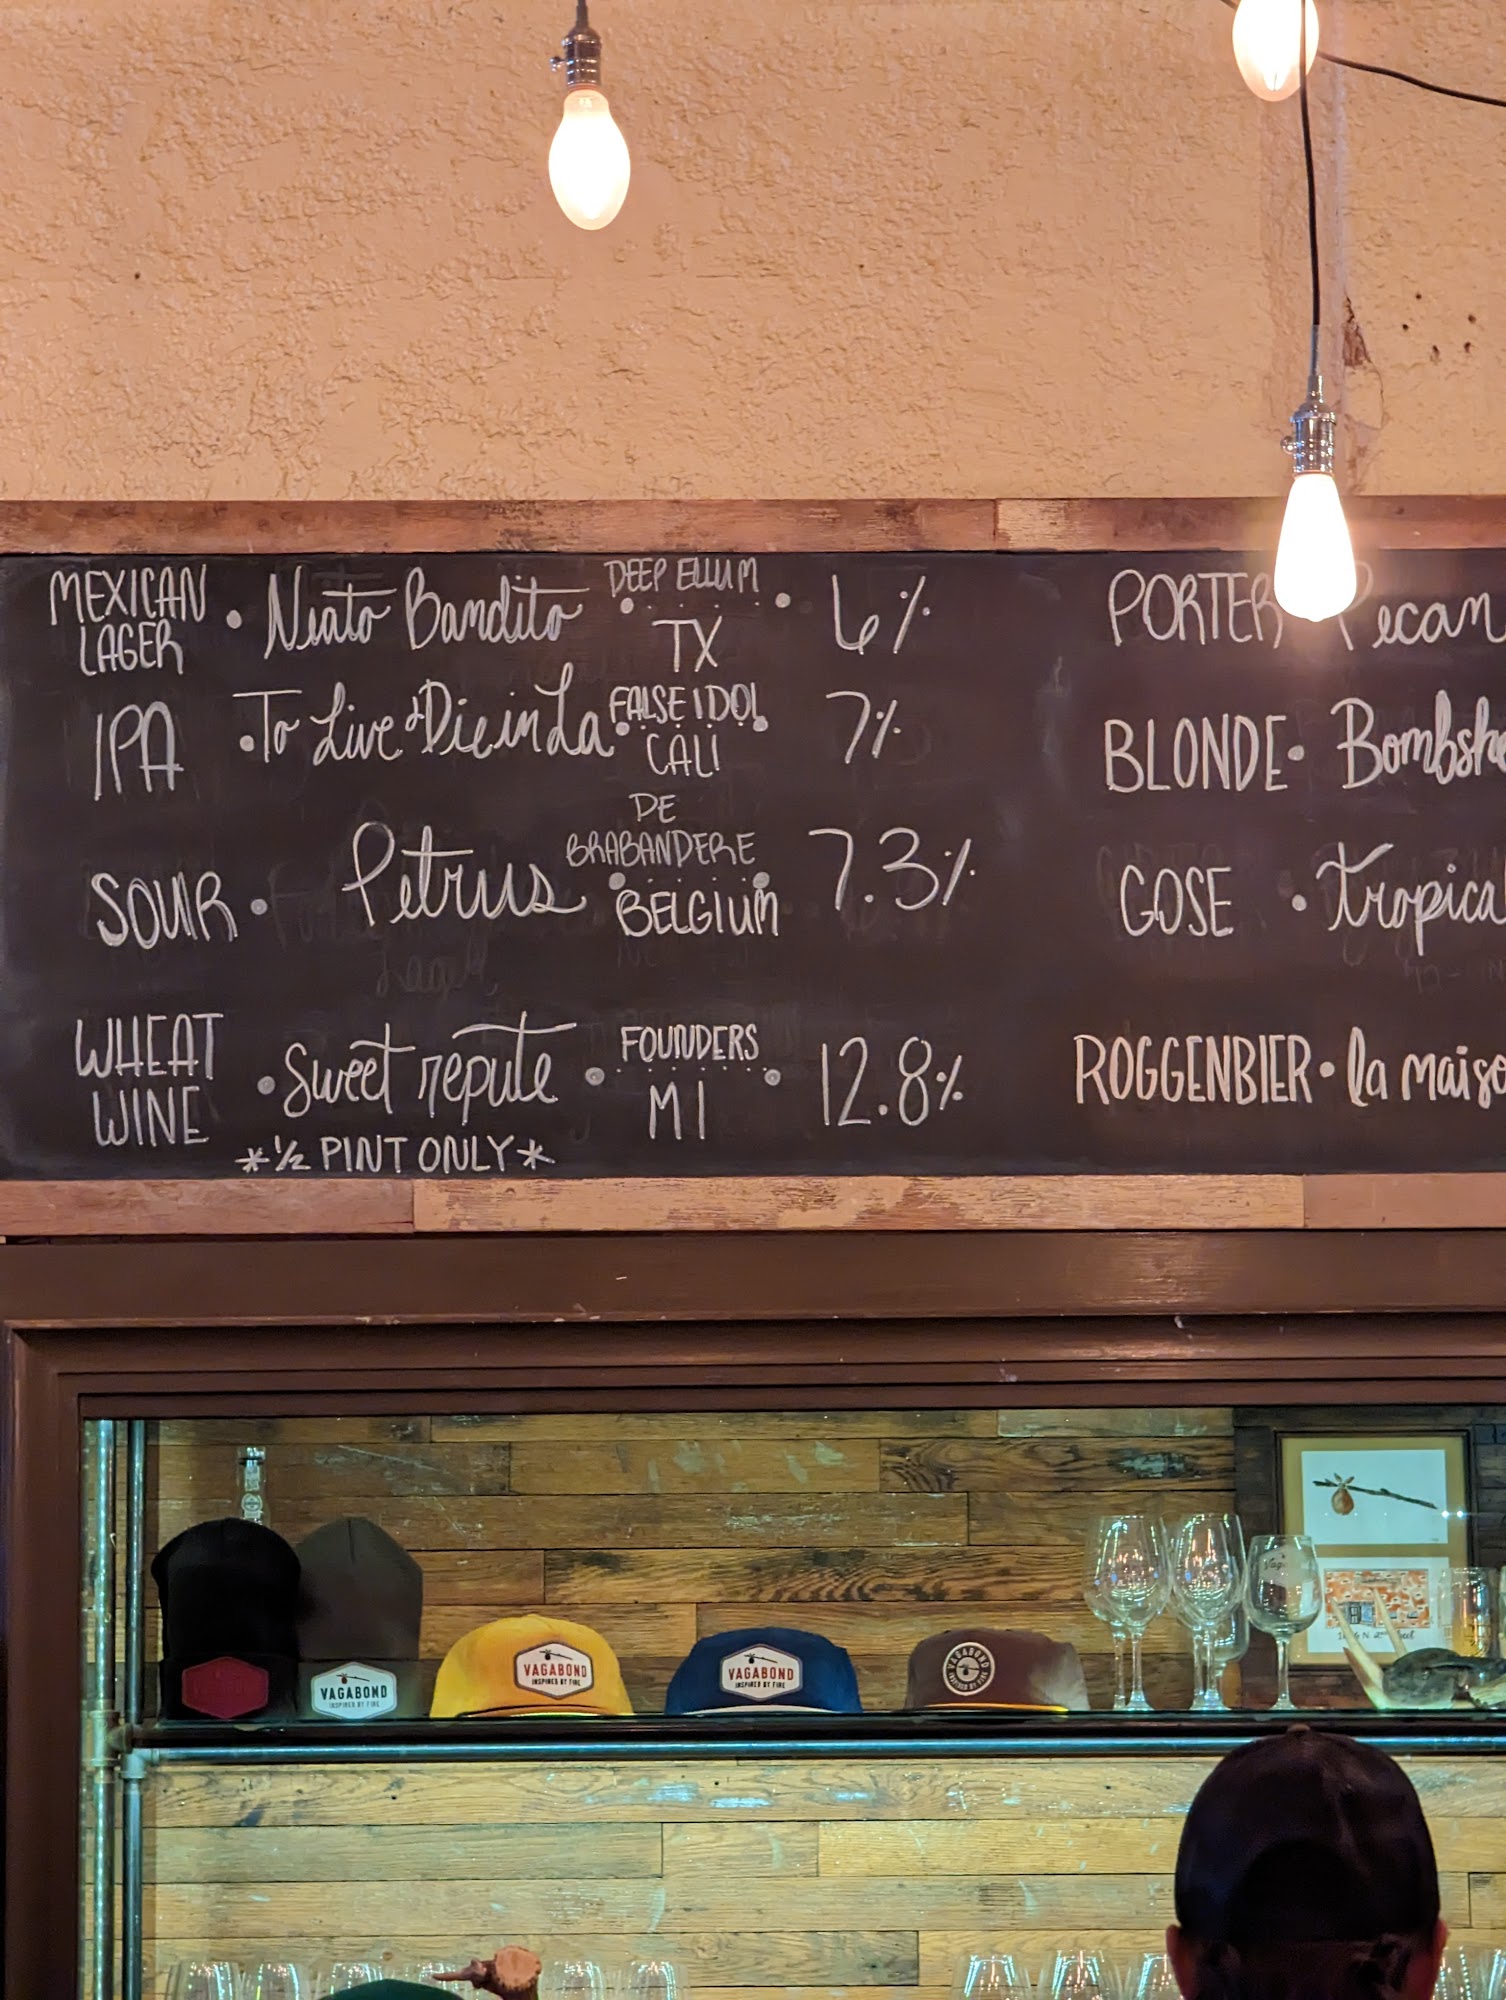 MEXICAN LAGER • Neato Bandito DEEP ELLUM • TX 6%
IPA • To Live & Die in La FALSE IDOL CALI 7%
SOUR • Petrus DE BRABANDERE BELGIUM 7.3%
WHEAT WINE • Sweet repute • FOUNDERS MI 12.8%
*½ PINT ONLY*
PORTER Pecan
BLONDE • Bombsh
GOSE • Tropica
ROGGENBIER • la maiso
VAGABOND
INSPIRED BY FIRE
VAGABOND
INSPIRED BY FIRE
VAGABOND
INSPIRED BY FIRE
VAGABOND